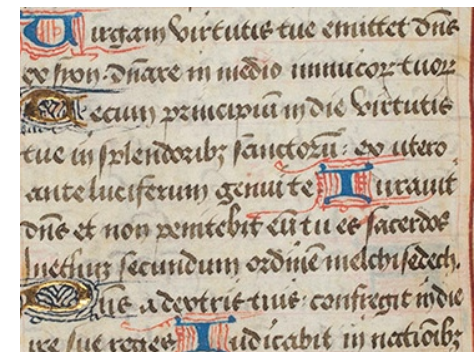 Uirgam virtutis tue emittet dñs
ex syon dñare in medio inimicor tuor
Tecum principiũ in die virtutis
tue in splendoribꝫ sanctorũ: ex utero
ante luciferum genui te Iurauit
dñs et non penitebit eũ tu es sacerdos
inethnꝫ secundum ordinẽ melchisedech.
Dñs a dextris tuis confregit in die
ire sue reges Iudicabit in nationibꝫ